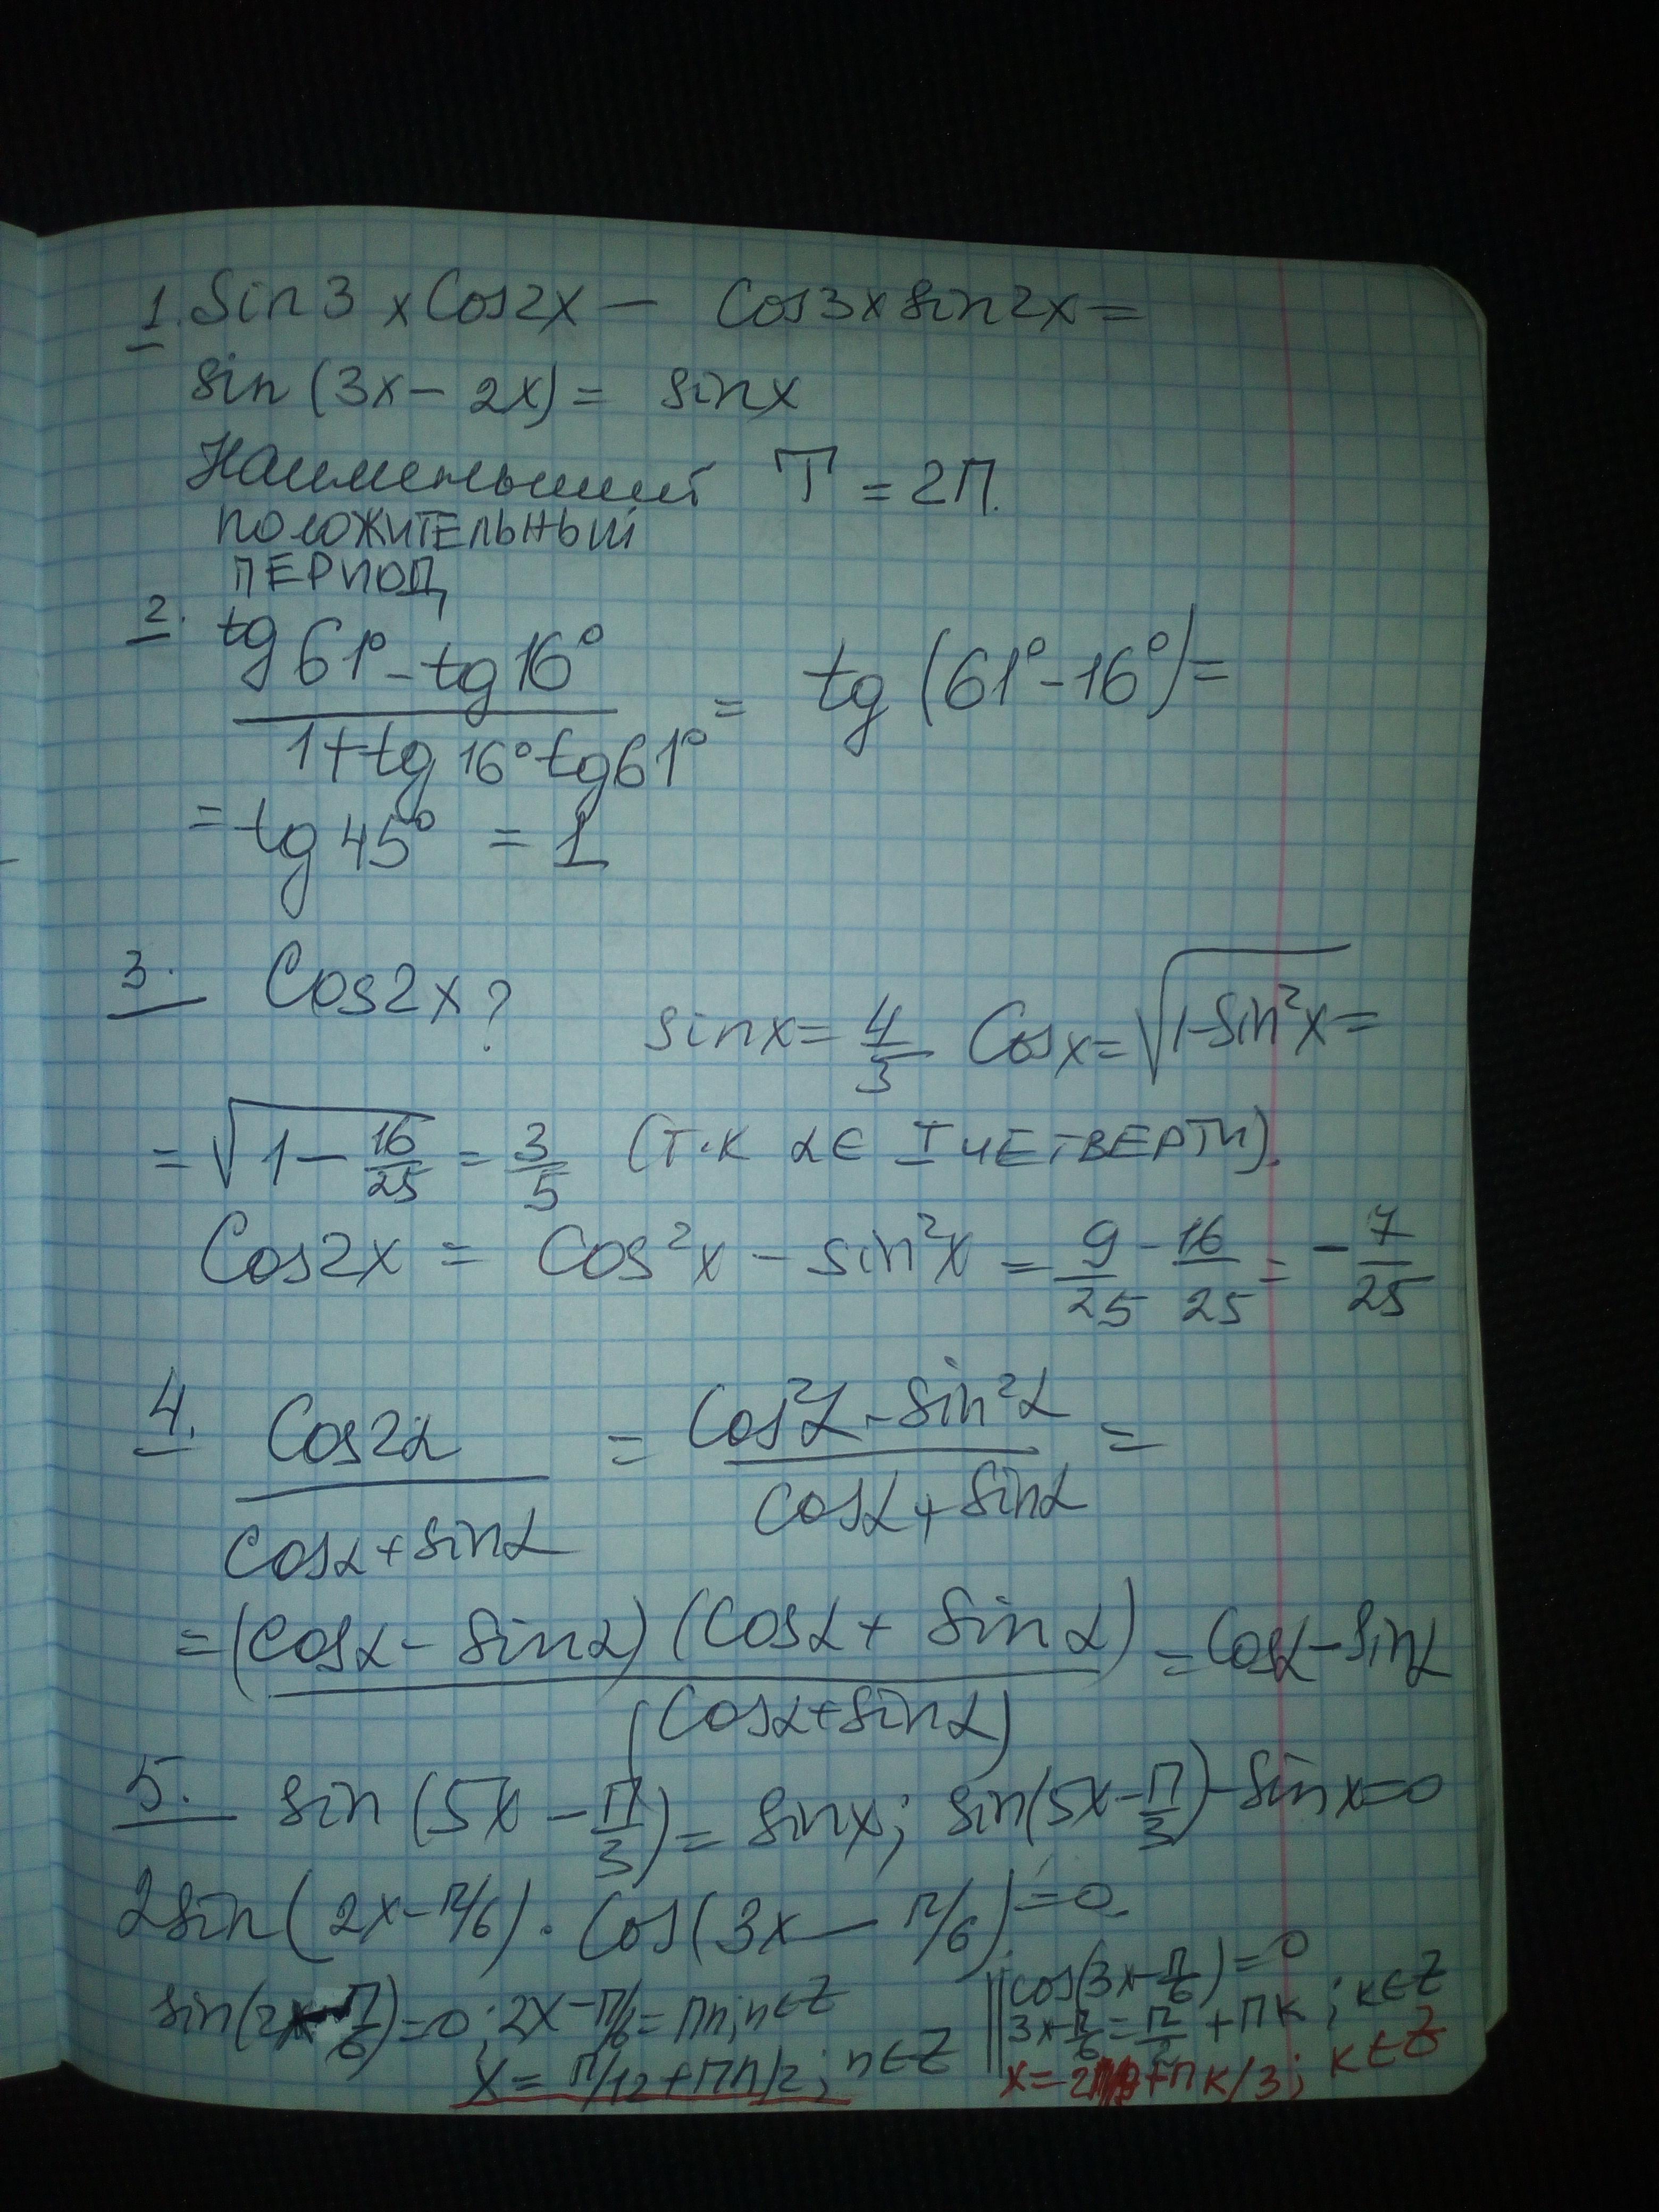 1. Sin3xCos2x - Cos3xsin2x=
sin(3x-2x)= sinx
Наименьший T=2П.
ПОЛОЖИТЕЛЬНЫЙ
ПЕРИОД
2. (tg61°-tg16°)/(1+tg16°tg61°) = tg(61°-16°)=
= tg45° = 1
3. Cos2x? sinx=4/3 Cosx=√(1-sin²x)=
=√(1-16/25)=3/5 (Т.К α∈ I ЧЕТВЕРТИ).
Cos2x = Cos²x-sin²x=9/25-16/25=-7/25
4. Cos2α/(cosα+sinα) = (Cos²α-sin²α)/(cosα+sinα) =
=(cosα-sinα)(cosα+sinα)/(cosα+sinα)=Cosα-sinα
5. sin(5x-П/3)=sinx; sin(5x-П/3)-sinx=0
2sin(2x-П/6)·Cos(3x-П/6)=0.
sin(2x-П/6)=0; 2x-П/6=Пn; n∈Z
x=П/12+Пn/2; n∈Z
cos(3x-П/6)=0
3x-П/6=П/2+Пк; к∈Z
x=2П/9+Пк/3; к∈Z